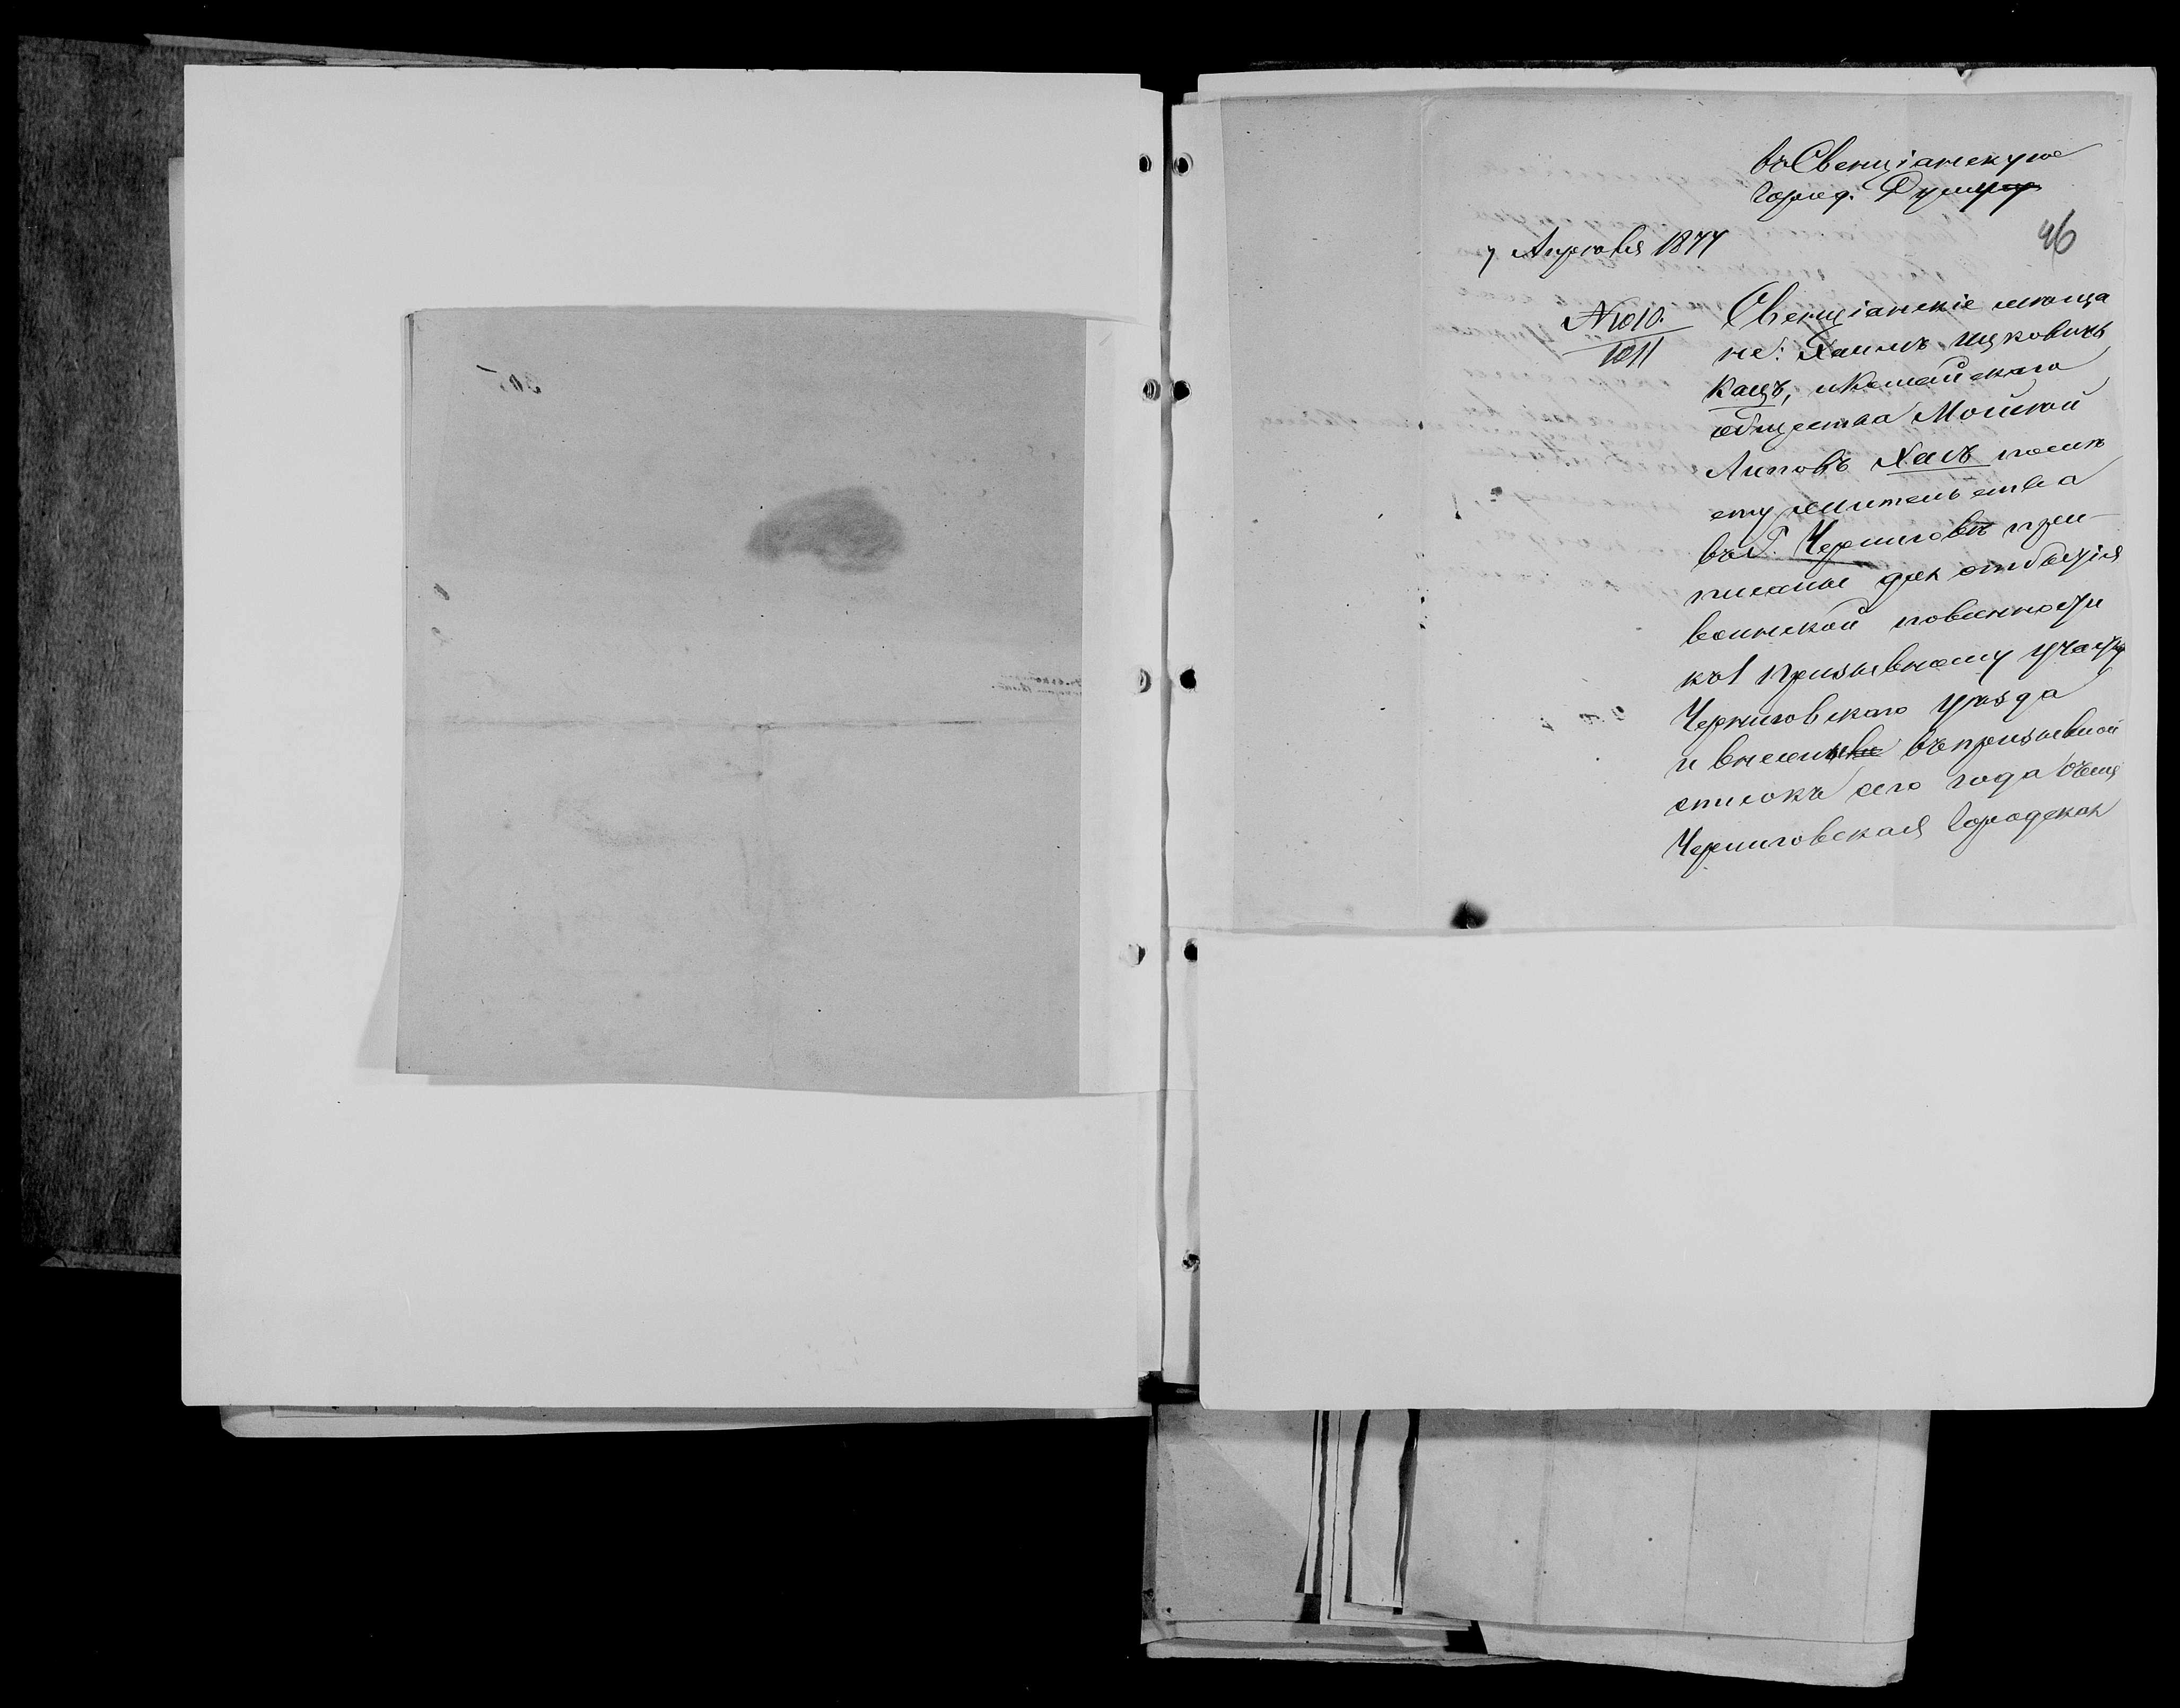 въ Свенціанскую
Город. Думу
46
7 Апрѣля 1877
№ 1010.
1011
Свенціанскіе мѣща
не: Хаимъ Ицковичъ
Кацъ, и Комайскаго
общества Мойсей
Липовъ Хацъ по мѣс
ту жительства
въ Г. Черниговѣ при-
писаны для отбытія
воинской повинности
къ 1 призывному участку
Черниговскаго уѣзда
и внесены въ призывной
списокъ сего года о чемъ
Черниговская Городская